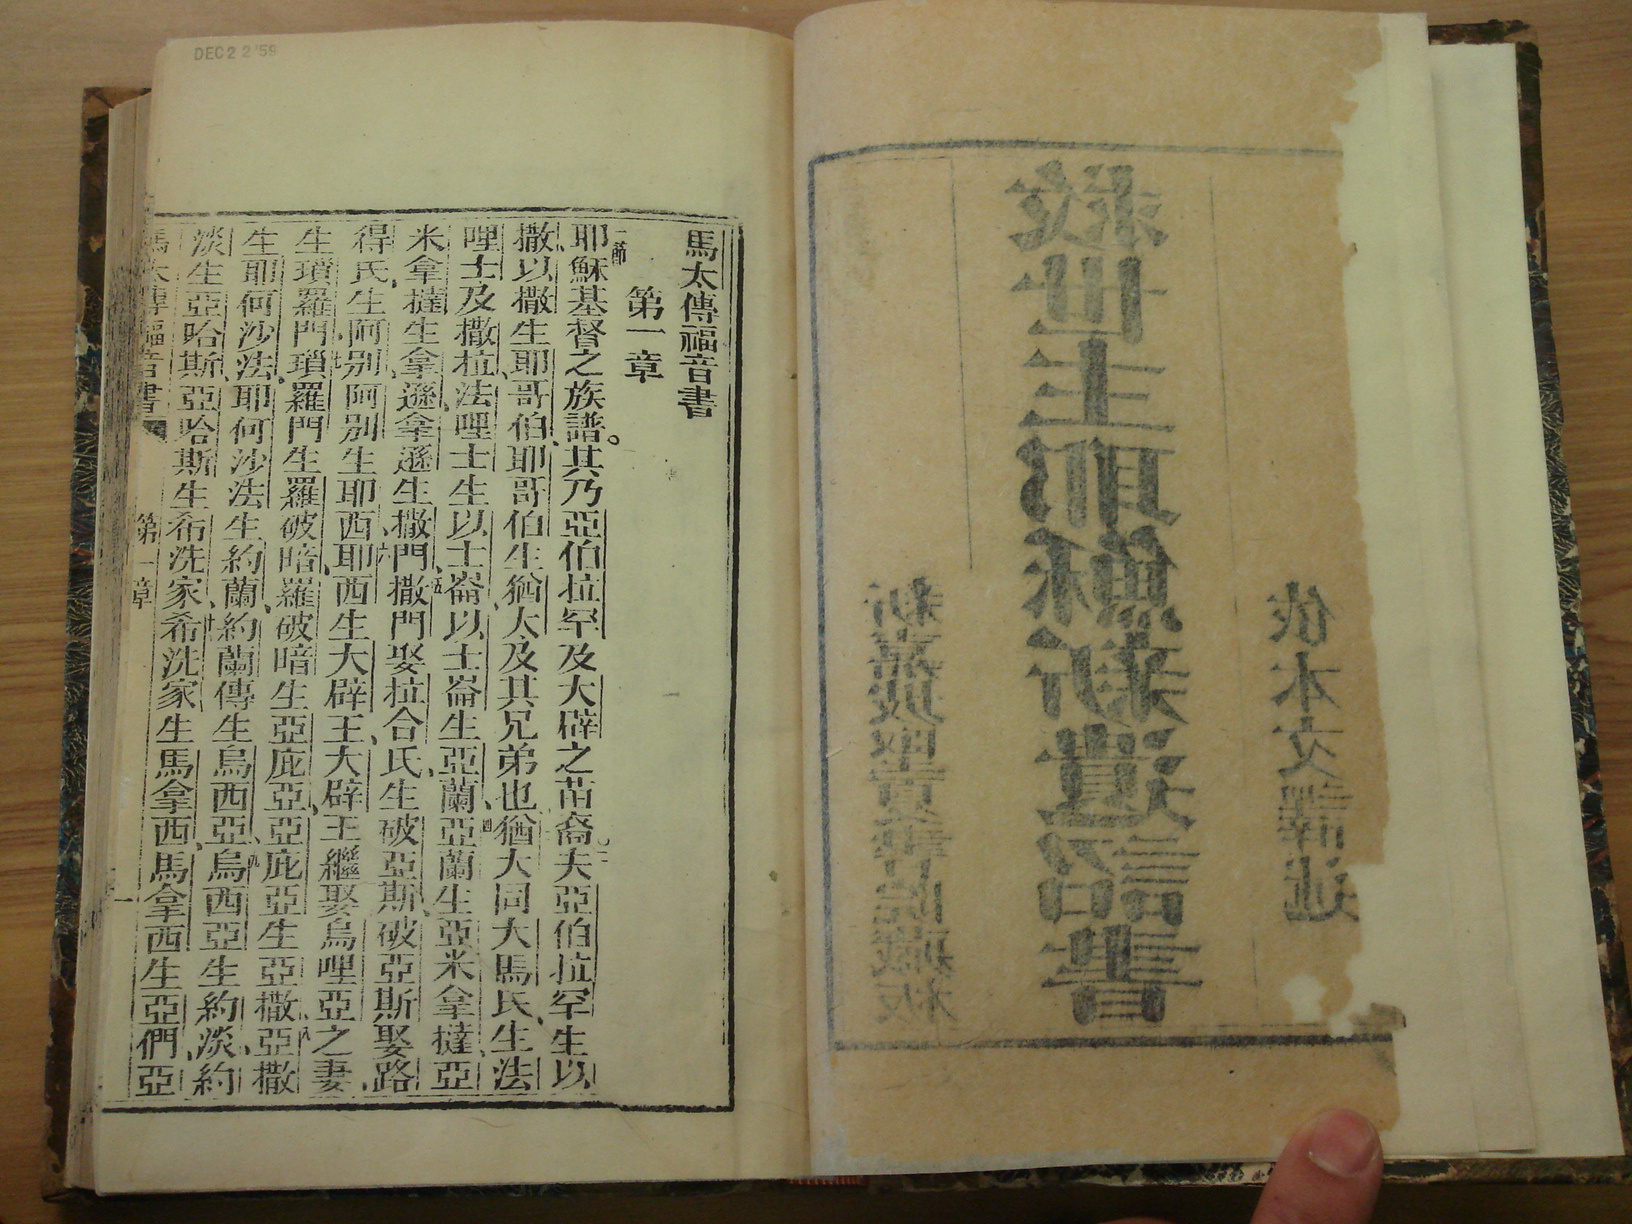 依本文譯述
救世主耶穌新遺詔書
新嘉坡堅夏書院藏板
DEC 2 2 '59
馬太傳福音書
第一章
一節耶穌基督之族譜。其乃亞伯拉罕及大辟之苗裔。二夫亞伯拉罕生以
撒、以撒生耶哥伯、耶哥伯生猶大及其兄弟也、猶大同大馬氏、生法
哩士及撒拉法哩士生以士崙、以士崙生亞蘭、四亞蘭生亞米拿撻、亞
米拿撻生拿遜、拿遜生撒門、五撒門娶拉合氏、生破亞斯、破亞斯娶路
得氏、生阿別、阿別生耶西、六耶西生大辟王、大辟王繼娶烏哩亞之妻、
生瑣羅門、七瑣羅門生羅破暗、羅破暗生亞庇亞、亞庇亞生亞撒、八亞撒
生耶何沙法、耶何沙法生約蘭、約蘭傳生烏西亞、九烏西亞生約淡、約
淡生亞哈斯、亞哈斯生希洗家、十希洗家生馬拿西、馬拿西生亞們、亞
馬太傳福音書 第一章 一